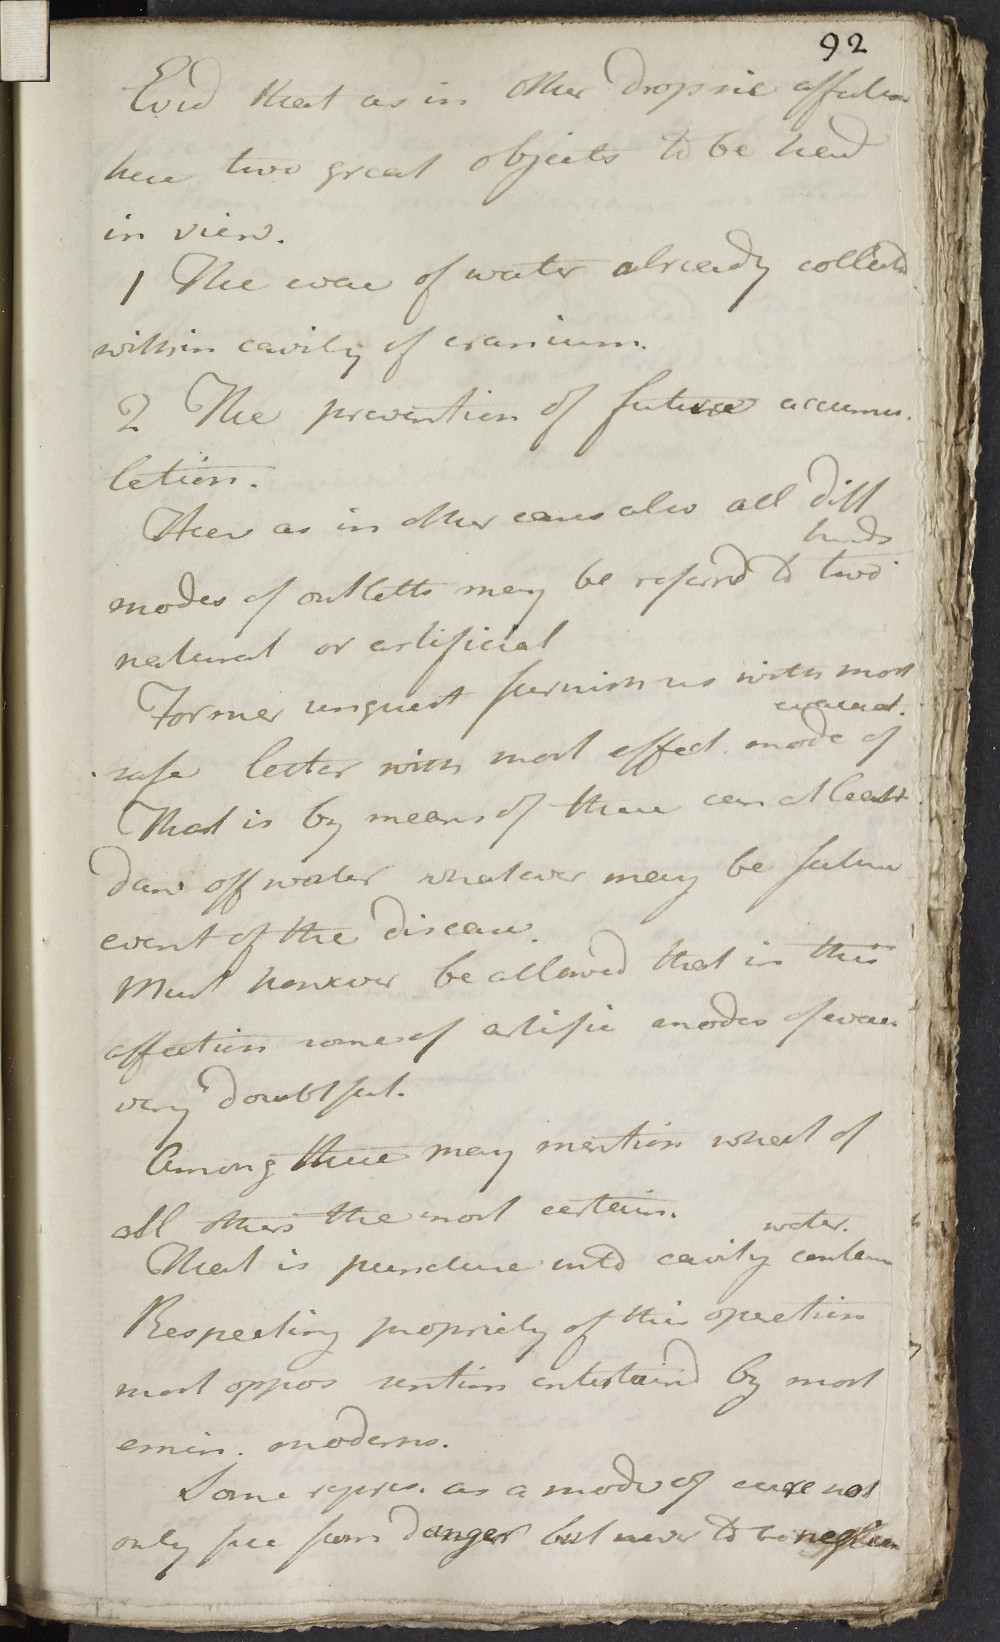 92
Evid that as in other dropsie affections
here two great objects to be had
in view.
1 The evac of water already collectd
within cavity of cranium.
2 The prevention of future accumu-
lation.
Here as in other cases also all diff
modes of outletts may be referrd to two
kinds
natural or artificial
Former unquest furnish us with most
safe latter with most effect mode of
evacuat.
That is by means of these can at least
draw off water whatever may be future
event of the disease.
Must however be allowed that in this
affection some of artific modes of evac
very doubtful.
Among these may mention what of
all others the most certain.
That is puncture into cavity contain
water.
Respecting propriety of this operation
most oppos sentim entertaind by most
emin. moderns.
Some repres. as a mode of cure not
only free from danger but never to be neglec